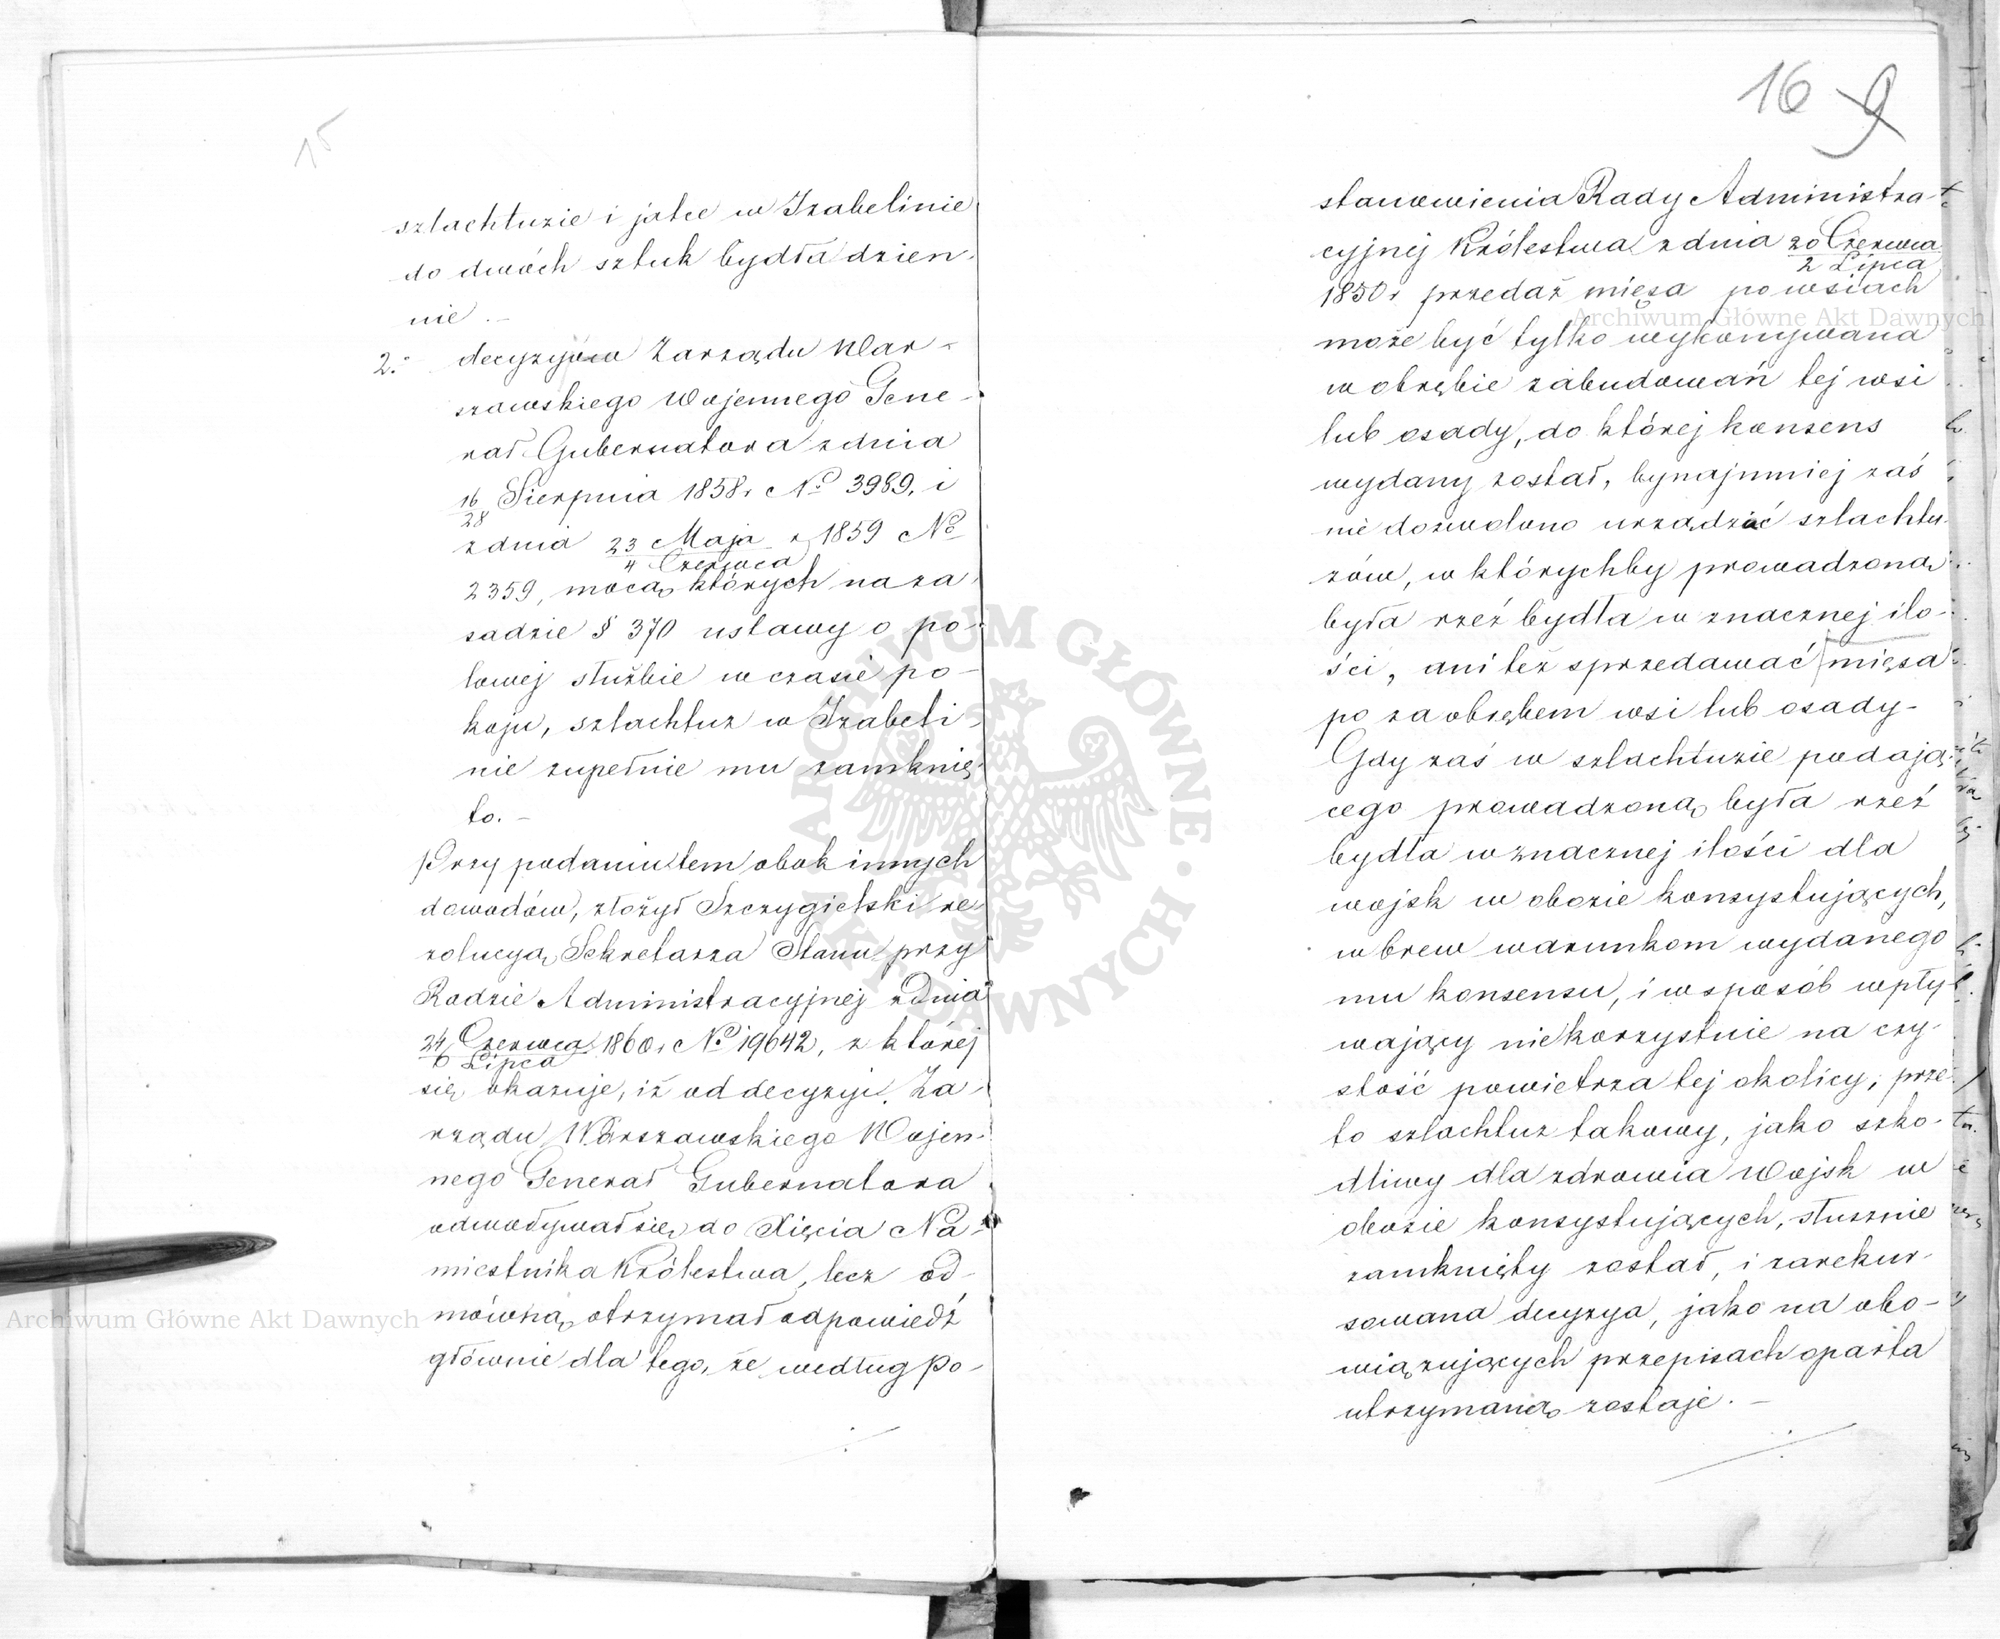 15
szlachtuzie i jatce w Izabelinie
do dwóch sztuk bydła dzien-
nie. –
2.- decyzyów Zarządu War-
szawskiego Wojennego Gene-
rał Gubernatora z dnia
16/28 Sierpnia 1858 r. No 3989, i
z dnia 23 Maja / 4 Czerwca r. 1859 No
2359, mocą których na za-
sadzie § 370 ustawy o po-
lowej służbie w czasie po-
koju, szlachtuz w Izabeli-
nie zupełnie mu zamknię-
to. –
Przy podaniu tem obok innych
dowodów, złożył Szczygielski re-
zolucyą Sekretarza Stanu przy
Radzie Administracyjnej z Dnia
24 Czerwca / 6 Lipca 1860 r. No 19642, z której
się okazuje, iż od decyzyi Za-
rządu Warszawskiego Wojen-
nego Generał Gubernatora
odwoływał się do Xięcia Na-
miestnika Królestwa, lecz od-
mówną otrzymał odpowiedź
głównie dla tego, że według po-
16 9
stanowienia Rady Administra-
cyjnej Królestwa z dnia 20 Czerwca / 2 Lipca
1850 r. przedaż mięsa po wsiach
może być tylko wykonywana
w obrębie zabudowań tej wsi
lub osady, do której konsens
wydany został, bynajmniej zaś
nie dozwolono urządzać szlachtu-
zów, w którychby prowadzoną
była rzeź bydła w znacznej ilo-
ści, ani też sprzedawać mięsa
po za obrębem wsi lub osady –
Gdy zaś w szlachtuzie podają-
cego prowadzoną była rzeź
bydła w znacznej ilości dla
wojsk w obozie konsystujących,
wbrew warunkom wydanego
mu konsensu, i w sposób wpły-
wający niekorzystnie na czy-
stość powietrza tej okolicy, prze-
to szlachtuz takowy, jako szko-
dliwy dla zdrowia Wojsk w
obozie konsystujących, słusznie
zamknięty został, i zarekur-
sowana decyzya, jako na obo-
wiązujących przepisach oparta
utrzymaną zostaje. –
Archiwum Główne Akt Dawnych
Archiwum Główne Akt Dawnych
ARCHIWUM GŁÓWNE AKT DAWNYCH